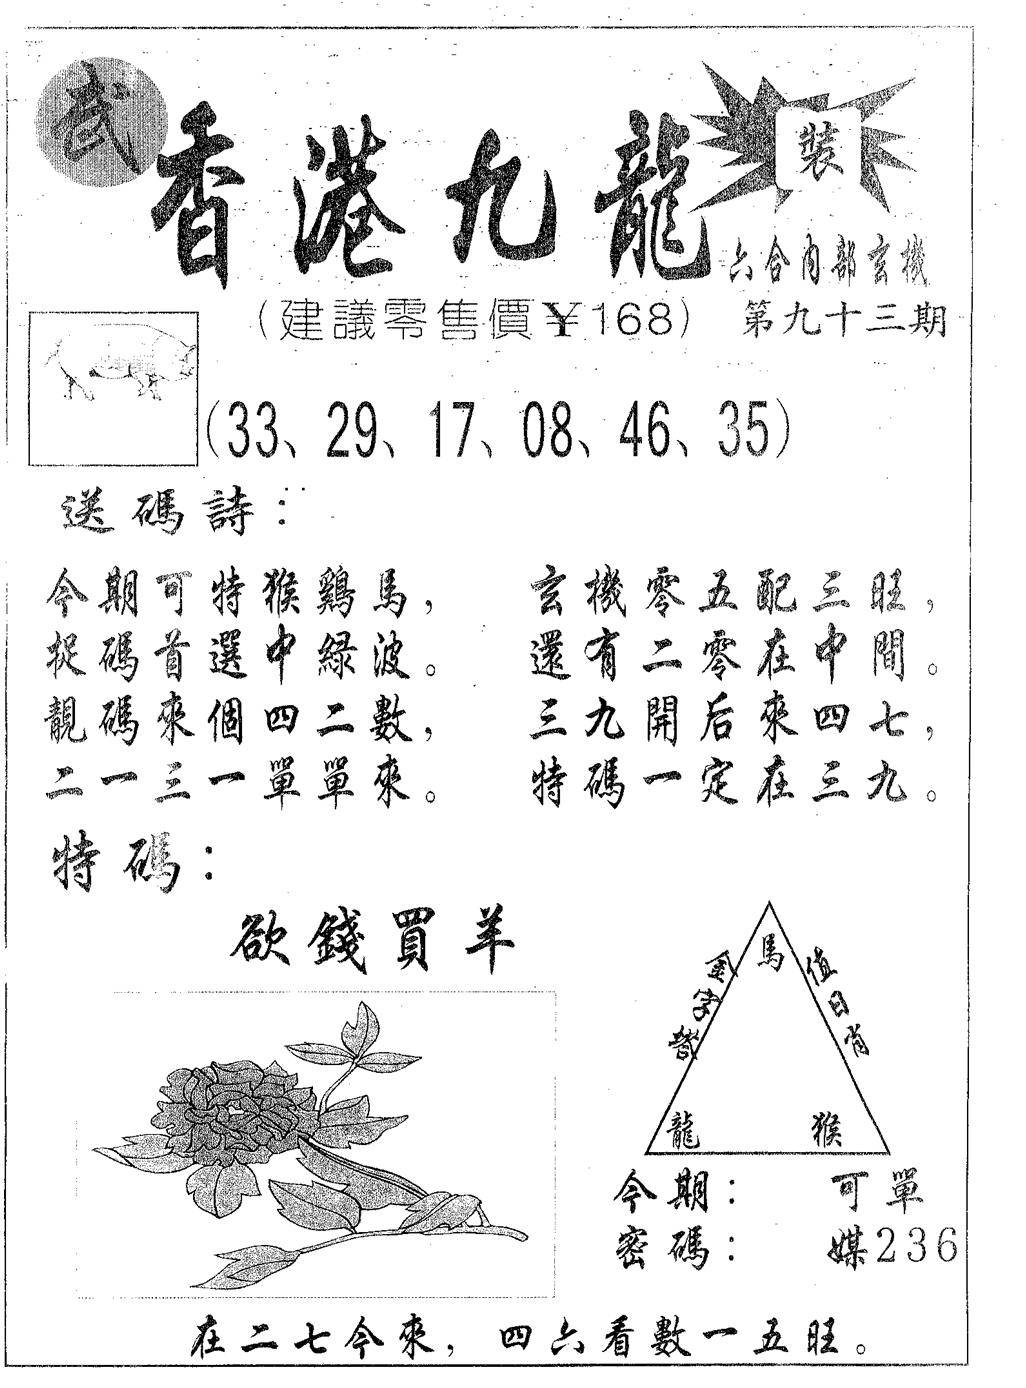 武
香港九龍
裝
六合內部玄機
(建議零售價¥168)
第九十三期
(33、29、17、08、46、35)
送碼詩：
今期可特猴鷄馬，
捉碼首選中綠波。
靚碼來個四二數，
二一三一單單來。
玄機零五配三旺，
還有二零在中間。
三九開后來四七，
特碼一定在三九。
特碼：
欲錢買羊
金字
值日肖
馬
龍
猴
今期： 可單
密碼： 媒236
在二七今來，四六看數一五旺。